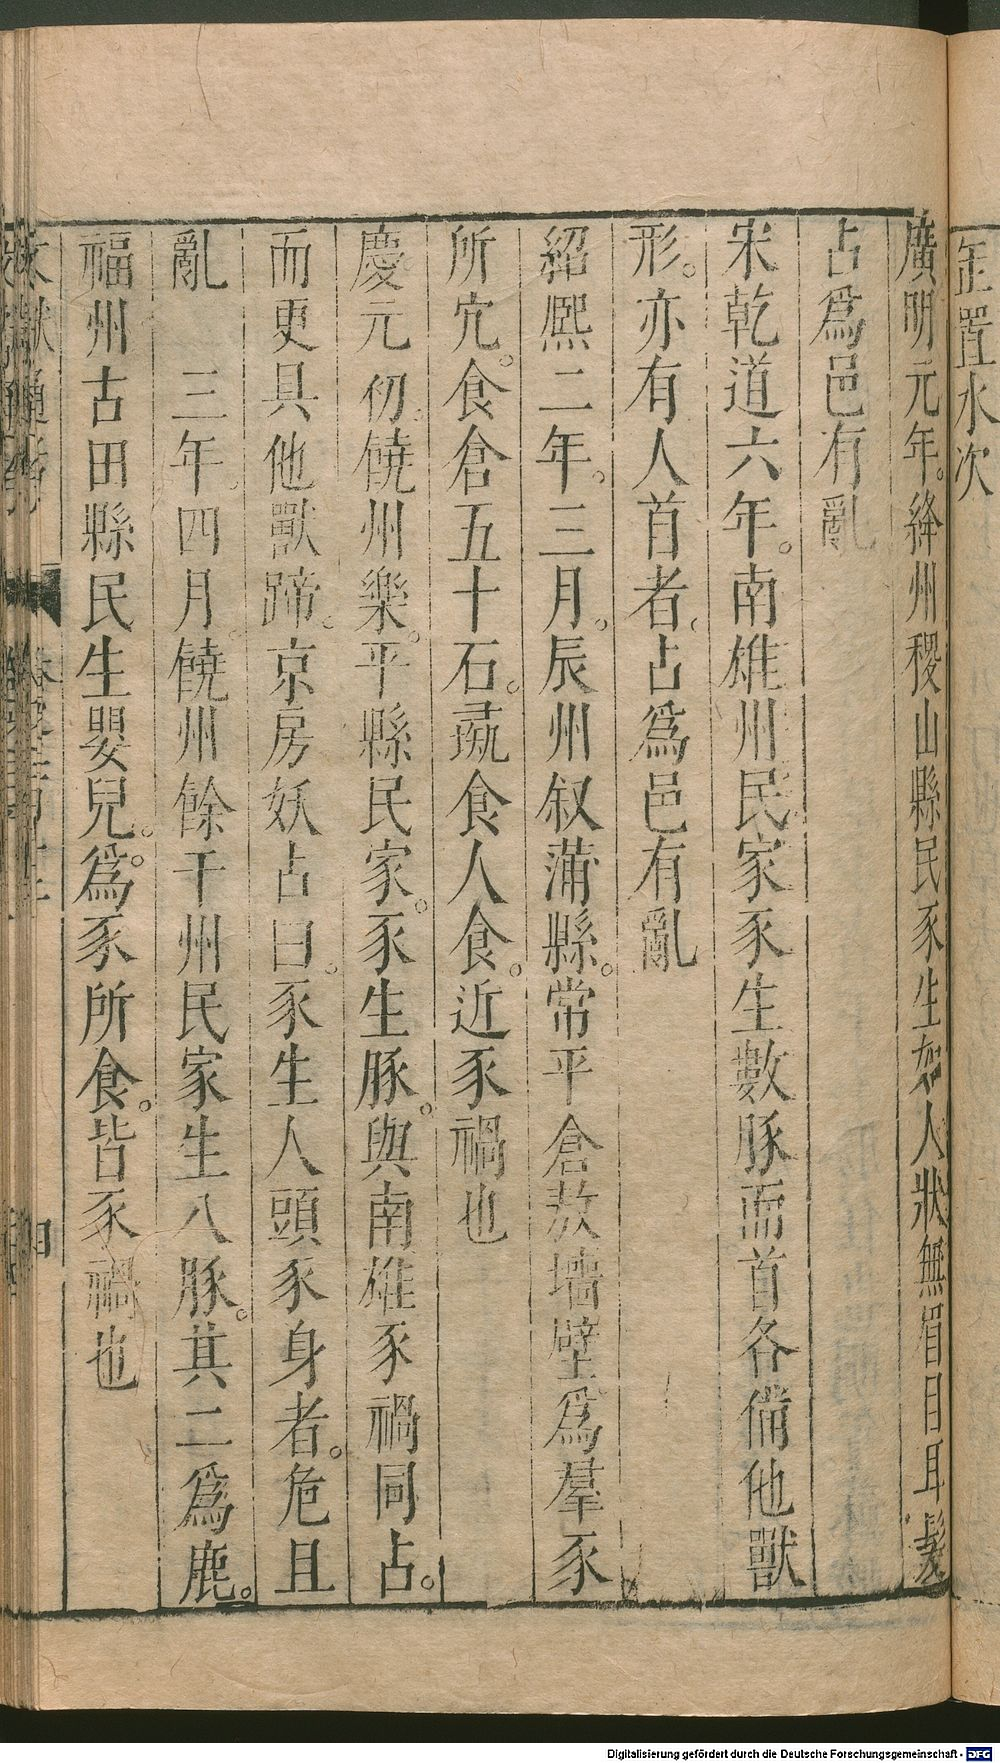 缶置水次
廣明元年。絳州稷山縣民豕生如人狀無眉目耳髮
占爲邑有亂
宋乾道六年。南雄州民家豕生數豚而首各備他獸
形。亦有人首者。占爲邑有亂
紹熙二年。三月。辰州叙蒲縣。常平倉敖墻壁爲羣豕
所宂。食倉五十石。彘食人食。近豕禍也
慶元初。饒州樂。平縣民家。豕生豚。與南雄豕禍同占。
而更具他獸蹄。京房妖占曰。豕生人頭豕身者。危且
亂　三年。四月。饒州餘干州民家生八豚。其二爲鹿。
福州古田縣民生嬰兒。爲豕所食。皆豕禍也
文獻通考
四
Digitalisierung gefördert durch die Deutsche Forschungsgemeinschaft - DFG